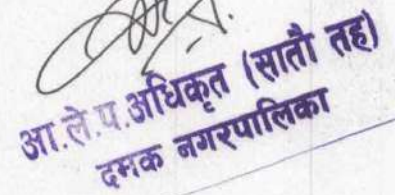 आ.ले.प.अधिकृत (सातौ तह)
दमक नगरपालिका